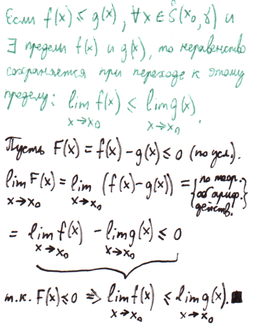 Если f(x) ≤ g(x), ∀x ∈ S̊(x₀, δ) и
∃ пределы f(x) и g(x), то неравенство
сохраняется при переходе к этому
пределу: lim f(x) ≤ lim g(x).
x→x₀ x→x₀
Пусть F(x) = f(x) - g(x) ≤ 0 (по усл.).
lim F(x) = lim (f(x) - g(x)) = {по теор. об арифм. действ.}
x→x₀ x→x₀
= lim f(x) - lim g(x) ≤ 0
x→x₀ x→x₀
т.к. F(x) ≤ 0 ⇒ lim f(x) ≤ lim g(x). ■
x→x₀ x→x₀